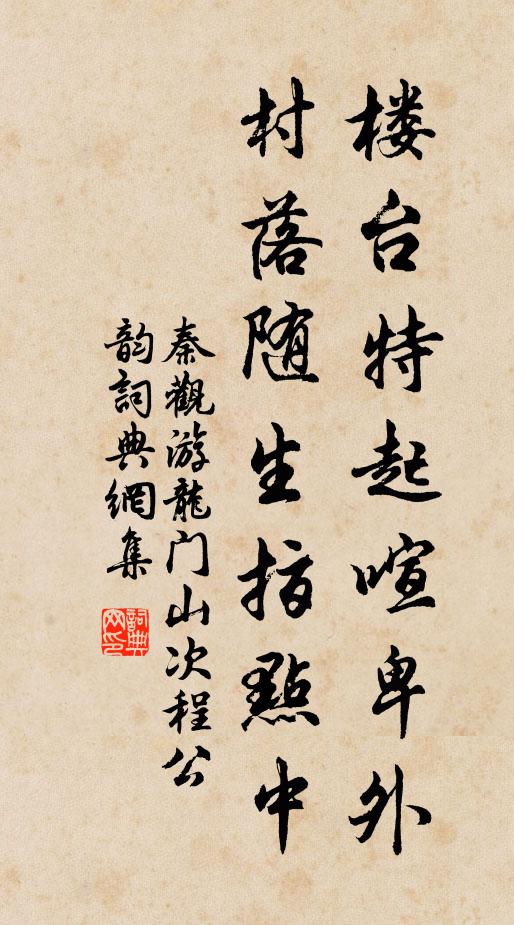 楼台特起喧卑外
村落随生指點中
秦觀游龍门山次程公
韵詞典網集
詞典网印